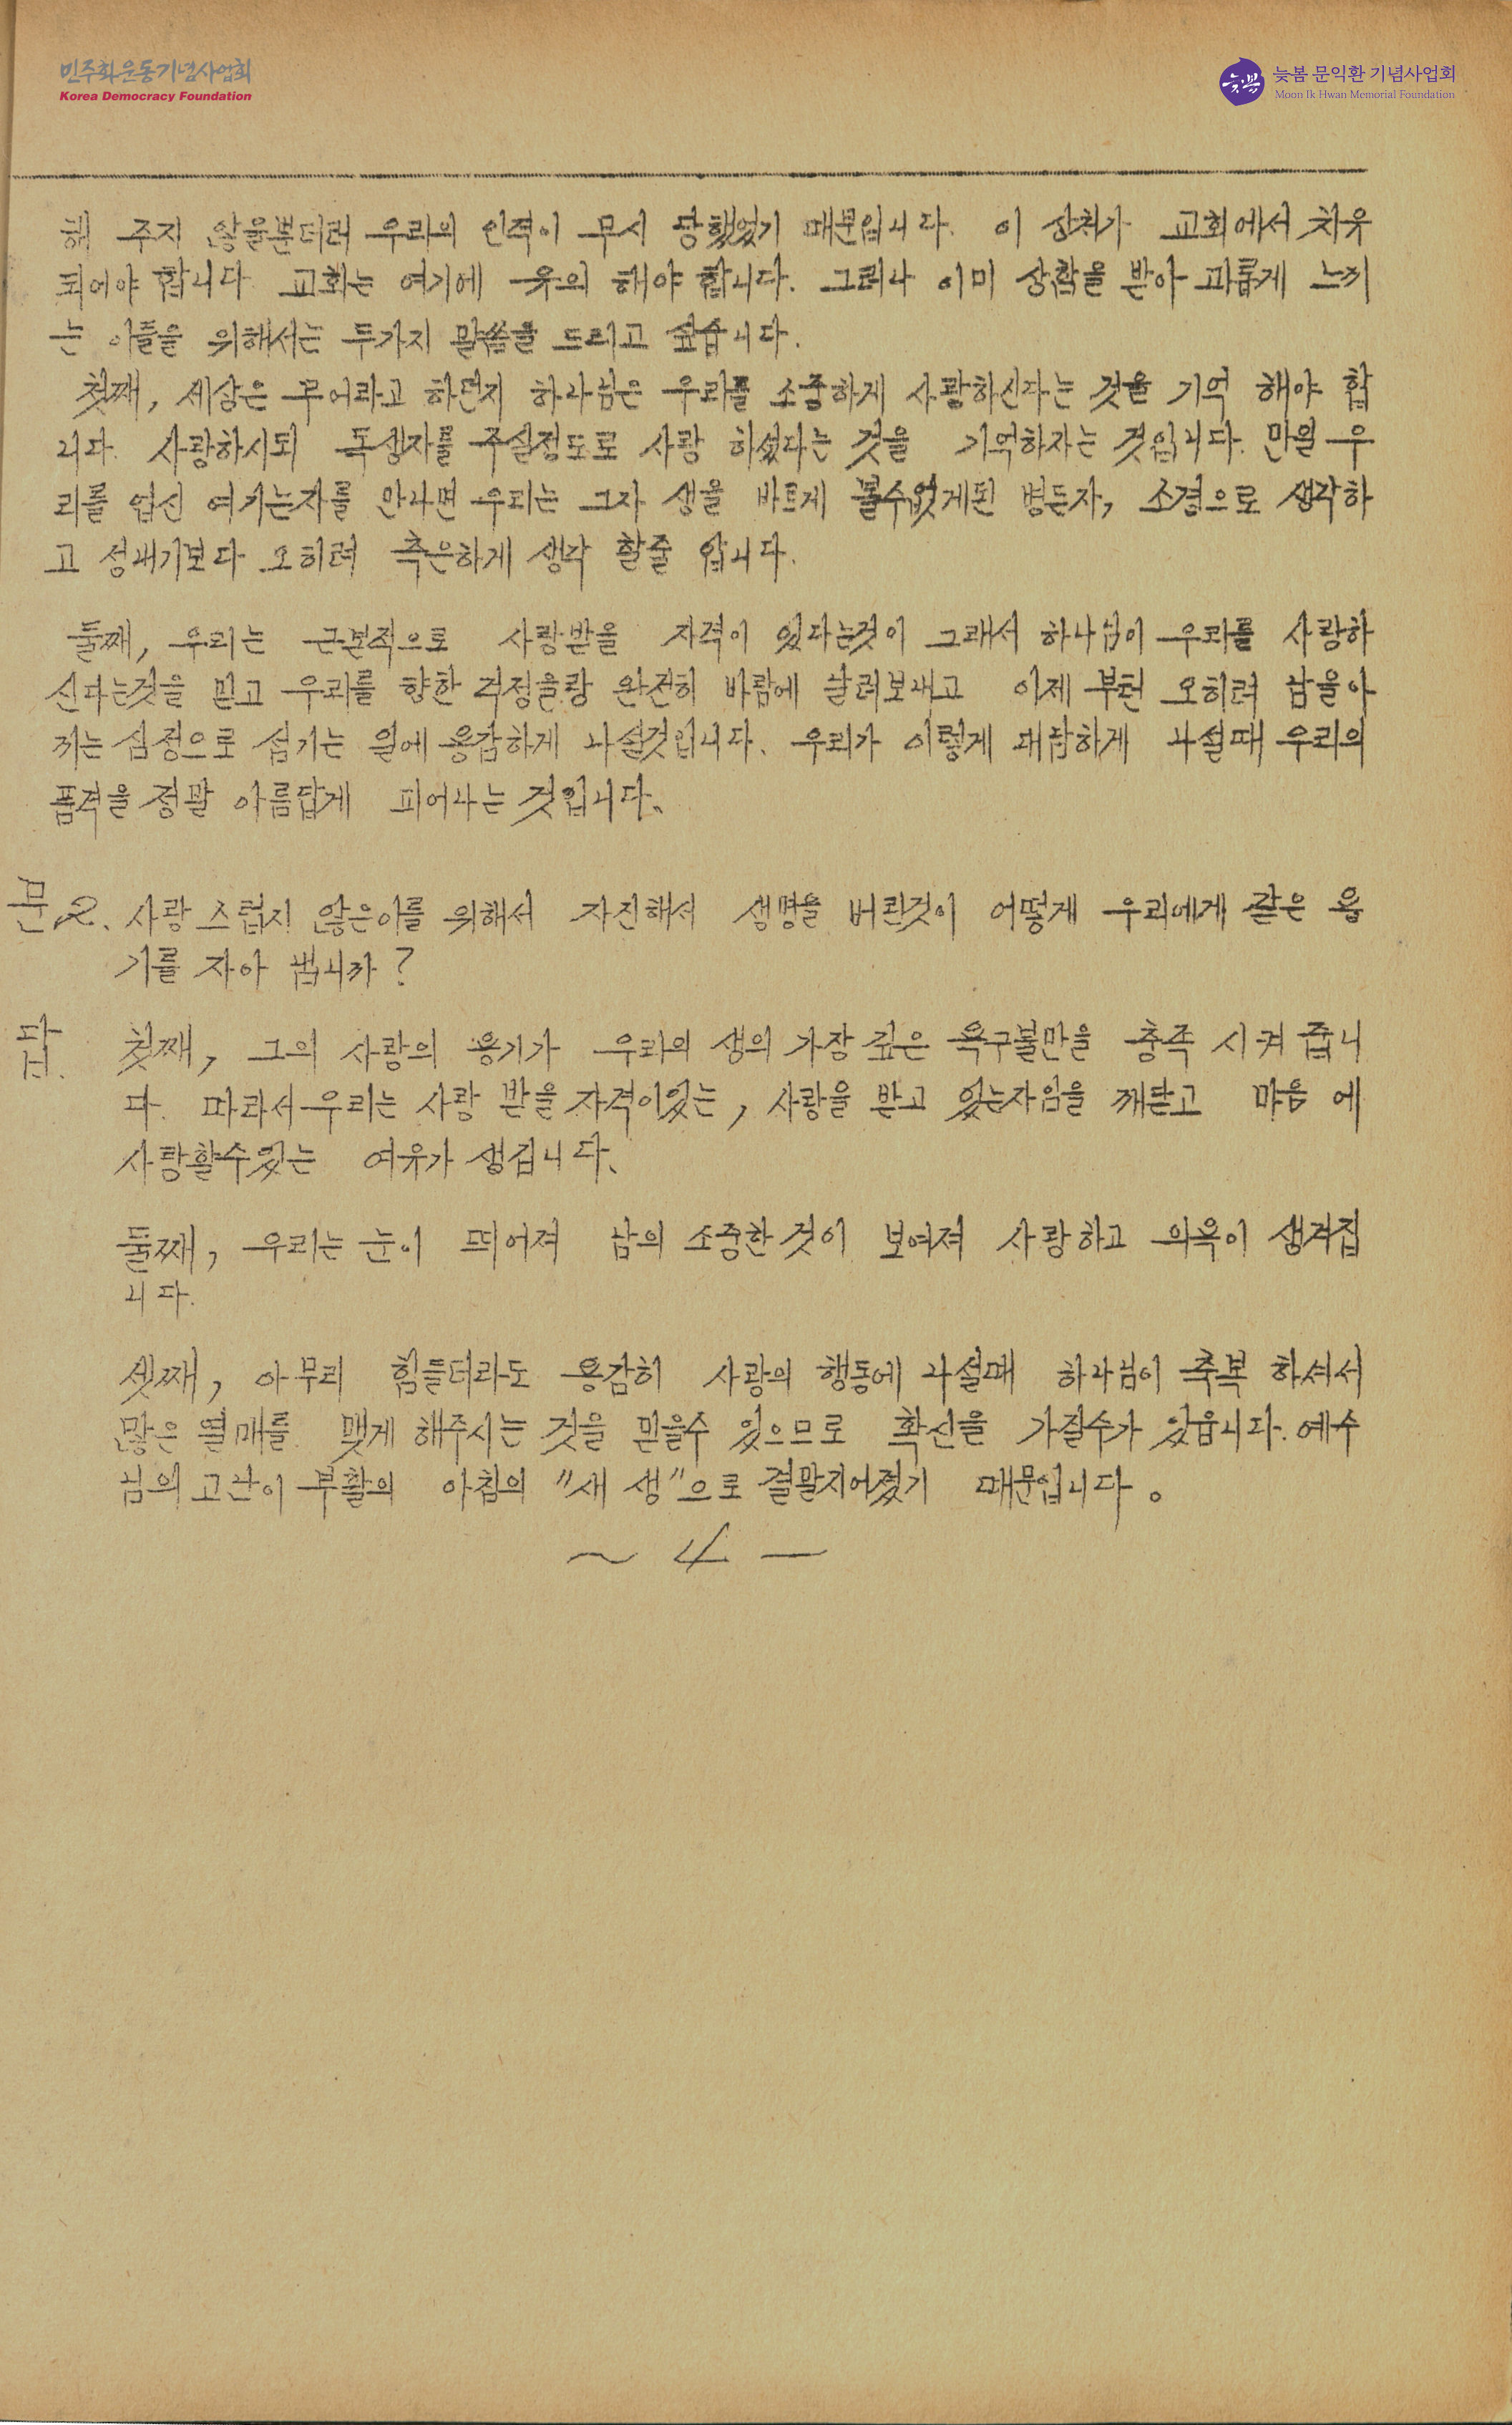 민주화운동기념사업회
Korea Democracy Foundation
늦봄 문익환 기념사업회
Moon Ik Hwan Memorial Foundation
해 주지 않을뿐더러 우리의 인격이 무시 당했었기 때문입니다. 이 상처가 교회에서 치유
되어야 합니다. 교회는 여기에 유의 해야 합니다. 그러나 이미 상함을 받아 괴롭게 느끼
는 이들을 위해서는 두가지 말씀을 드리고 싶습니다.
첫째, 세상은 무어라고 하던지 하나님은 우리를 소중하게 사랑하신다는 것을 기억 해야 합
니다. 사랑하시되 독생자를 주실정도로 사랑 하셨다는 것을 기억하자는 것입니다. 만일 우
리를 업신 여기는자를 만나면 우리는 그자 생을 바르게 볼수없게된 병든자, 소경으로 생각하
고 성내기보다 오히려 측은하게 생각 할줄 압니다.
둘째, 우리는 근본적으로 사랑받을 자격이 있다는것이 그래서 하나님이 우리를 사랑하
신다는것을 믿고 우리를 향한 걱정을랑 완전히 바람에 날려보내고 이제 부턴 오히려 남을아
끼는 심정으로 섬기는 일에 용감하게 나설것입니다. 우리가 이렇게 대담하게 나설때 우리의
품격을 정말 아름답게 피어나는 것입니다.
문.2. 사랑 스럽지 않은이를 위해서 자진해서 생명을 버린것이 어떻게 우리에게 같은 용
기를 자아 냅니까?
답. 첫째, 그의 사랑의 용기가 우리의 생의 가장 깊은 욕구불만을 충족 시켜 줍니
다. 따라서 우리는 사랑 받을 자격이있는, 사랑을 받고 있는자임을 깨닫고 마음 에
사랑할수있는 여유가 생깁니다.
둘째, 우리는 눈이 띄어져 남의 소중한 것이 보여져 사랑하고 의욕이 생겨집
니다.
셋째, 아무리 힘들더라도 용감히 사랑의 행동에 나설때 하나님이 축복 하셔서
많은 열매를 맺게 해주시는 것을 믿을수 있으므로 확신을 가질수가 있읍니다. 예수
님의 고난이 부활의 아침의 "새 생"으로 결말지어졌기 때문입니다.
~ 4 —